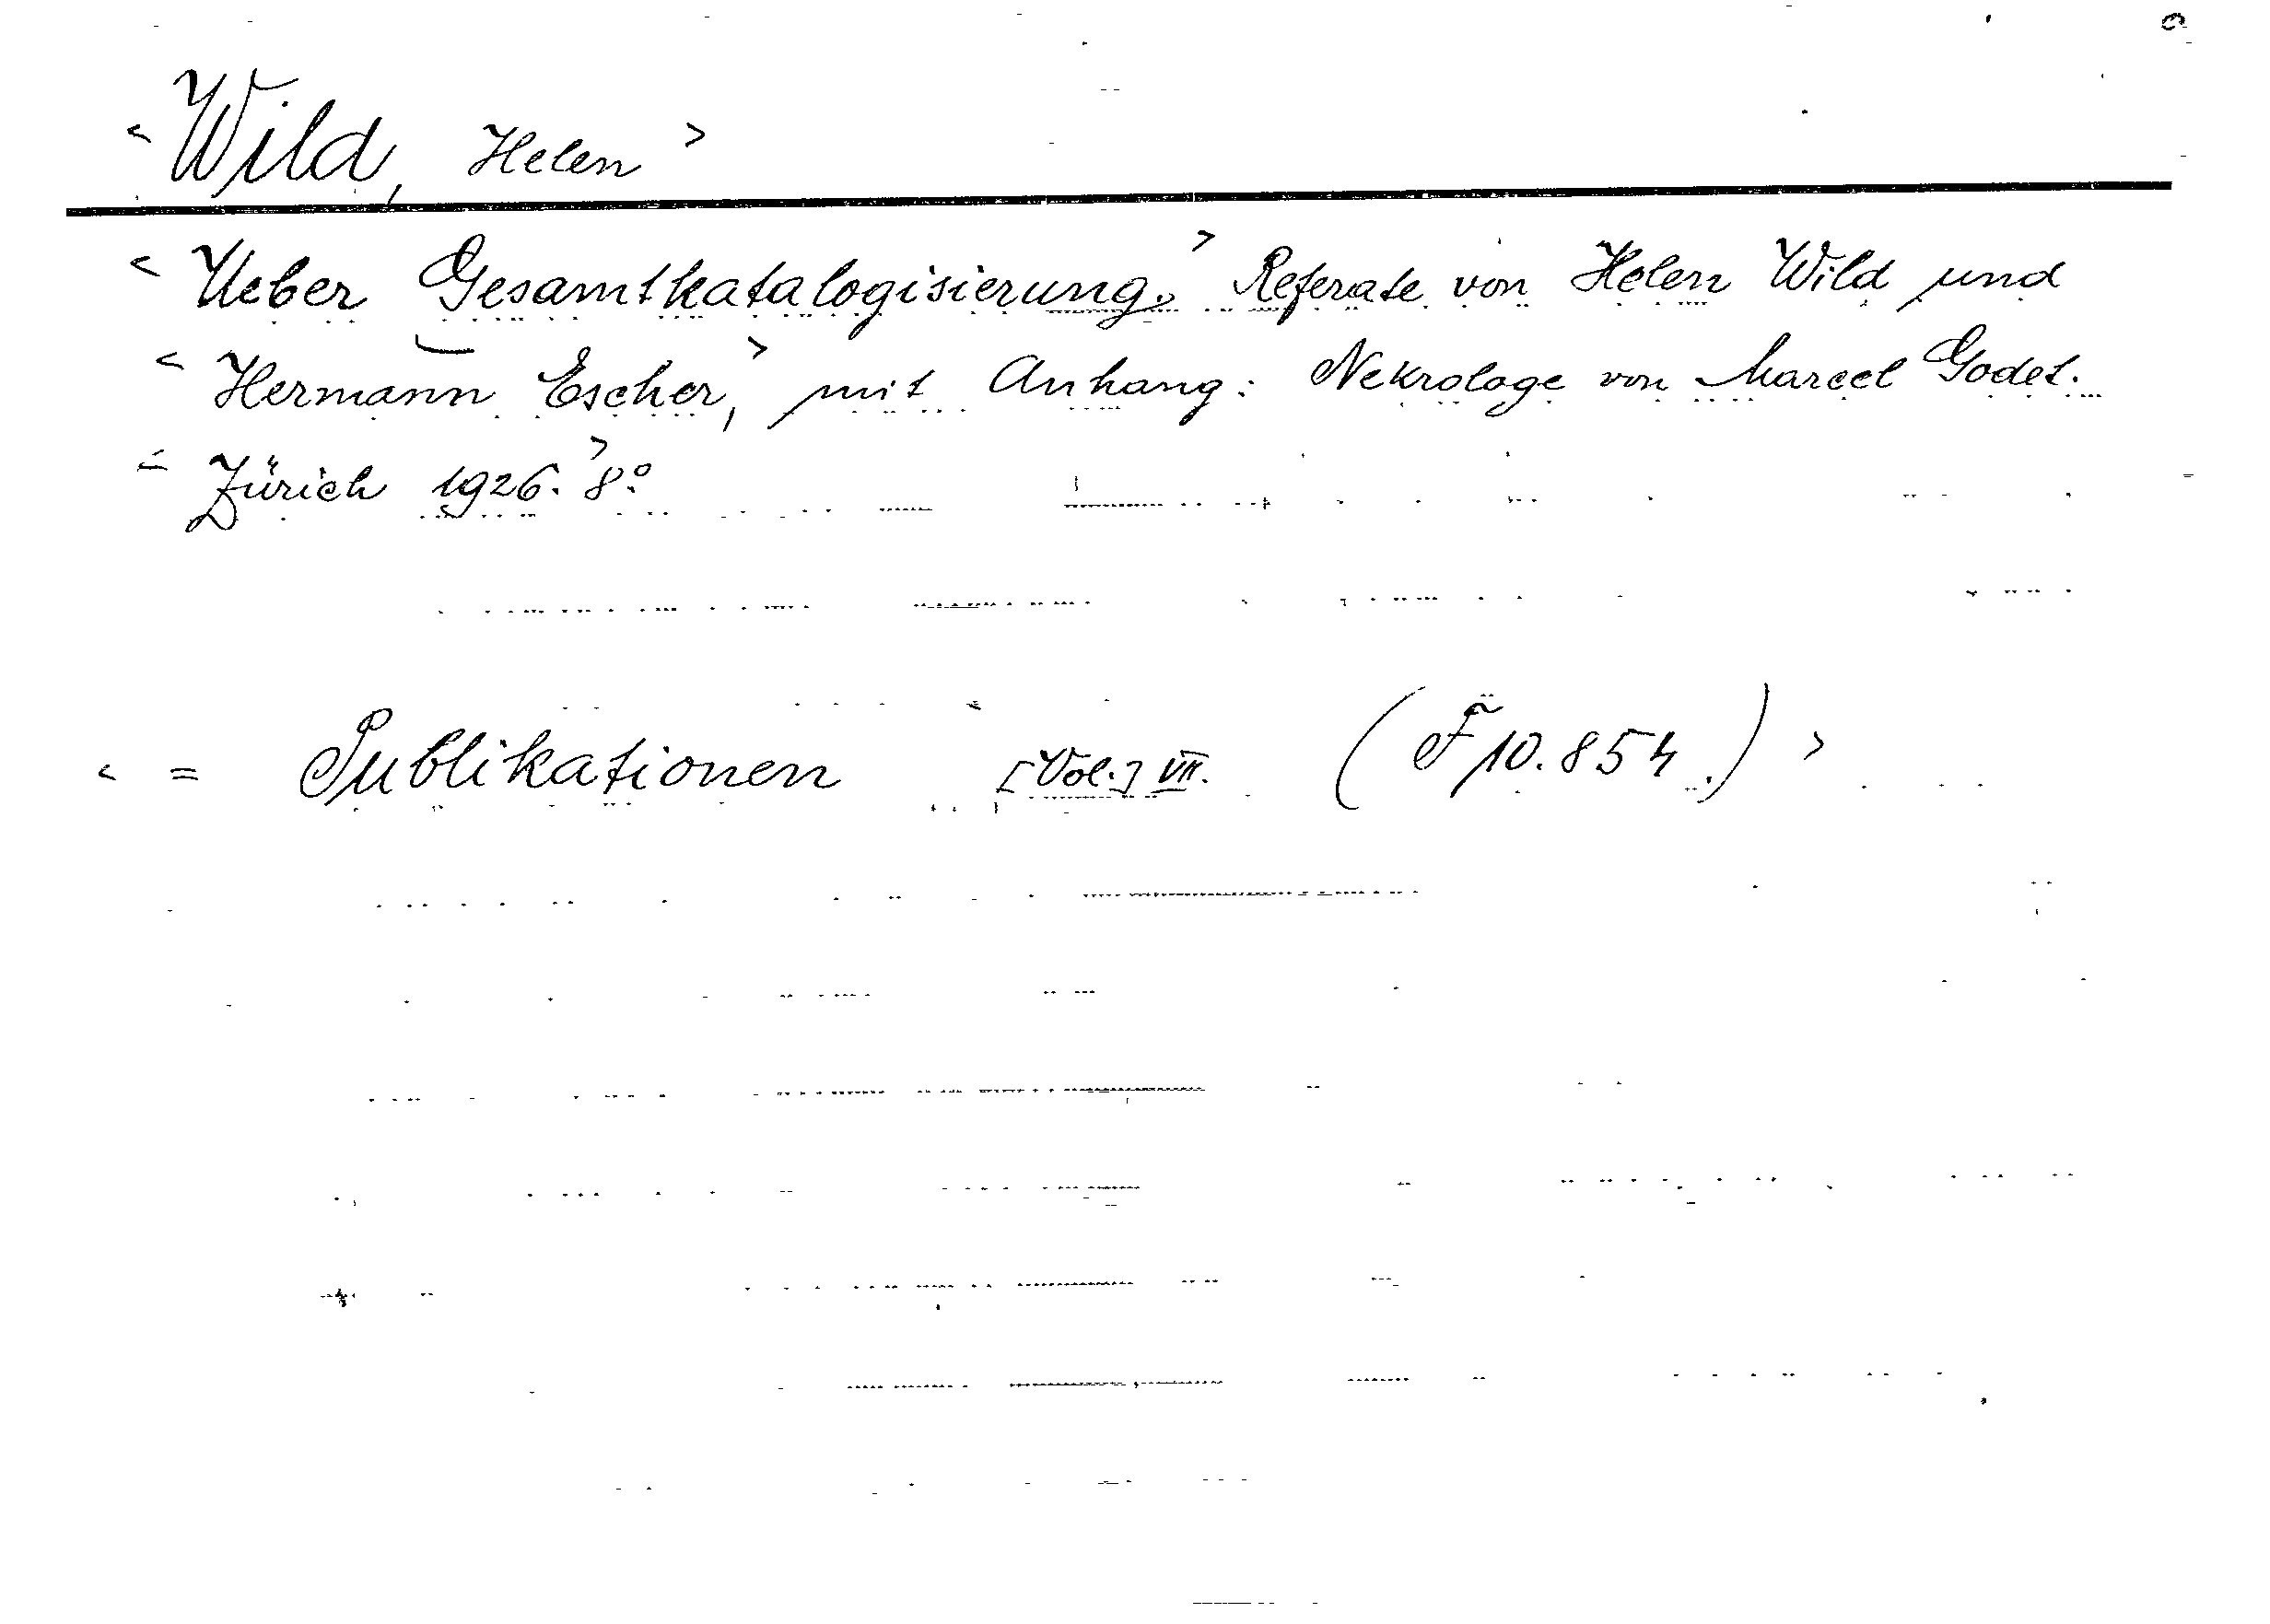 < Wild, Helen >
< Ueber Gesamtkatalogisierung. > Referate von Helen Wild und
< Hermann Escher, > mit Anhang: Nekrologe von Marcel Godet.
< Zürich 1926. > 8°.
< = Publikationen [Vol.] VII. (F 10.854.) >